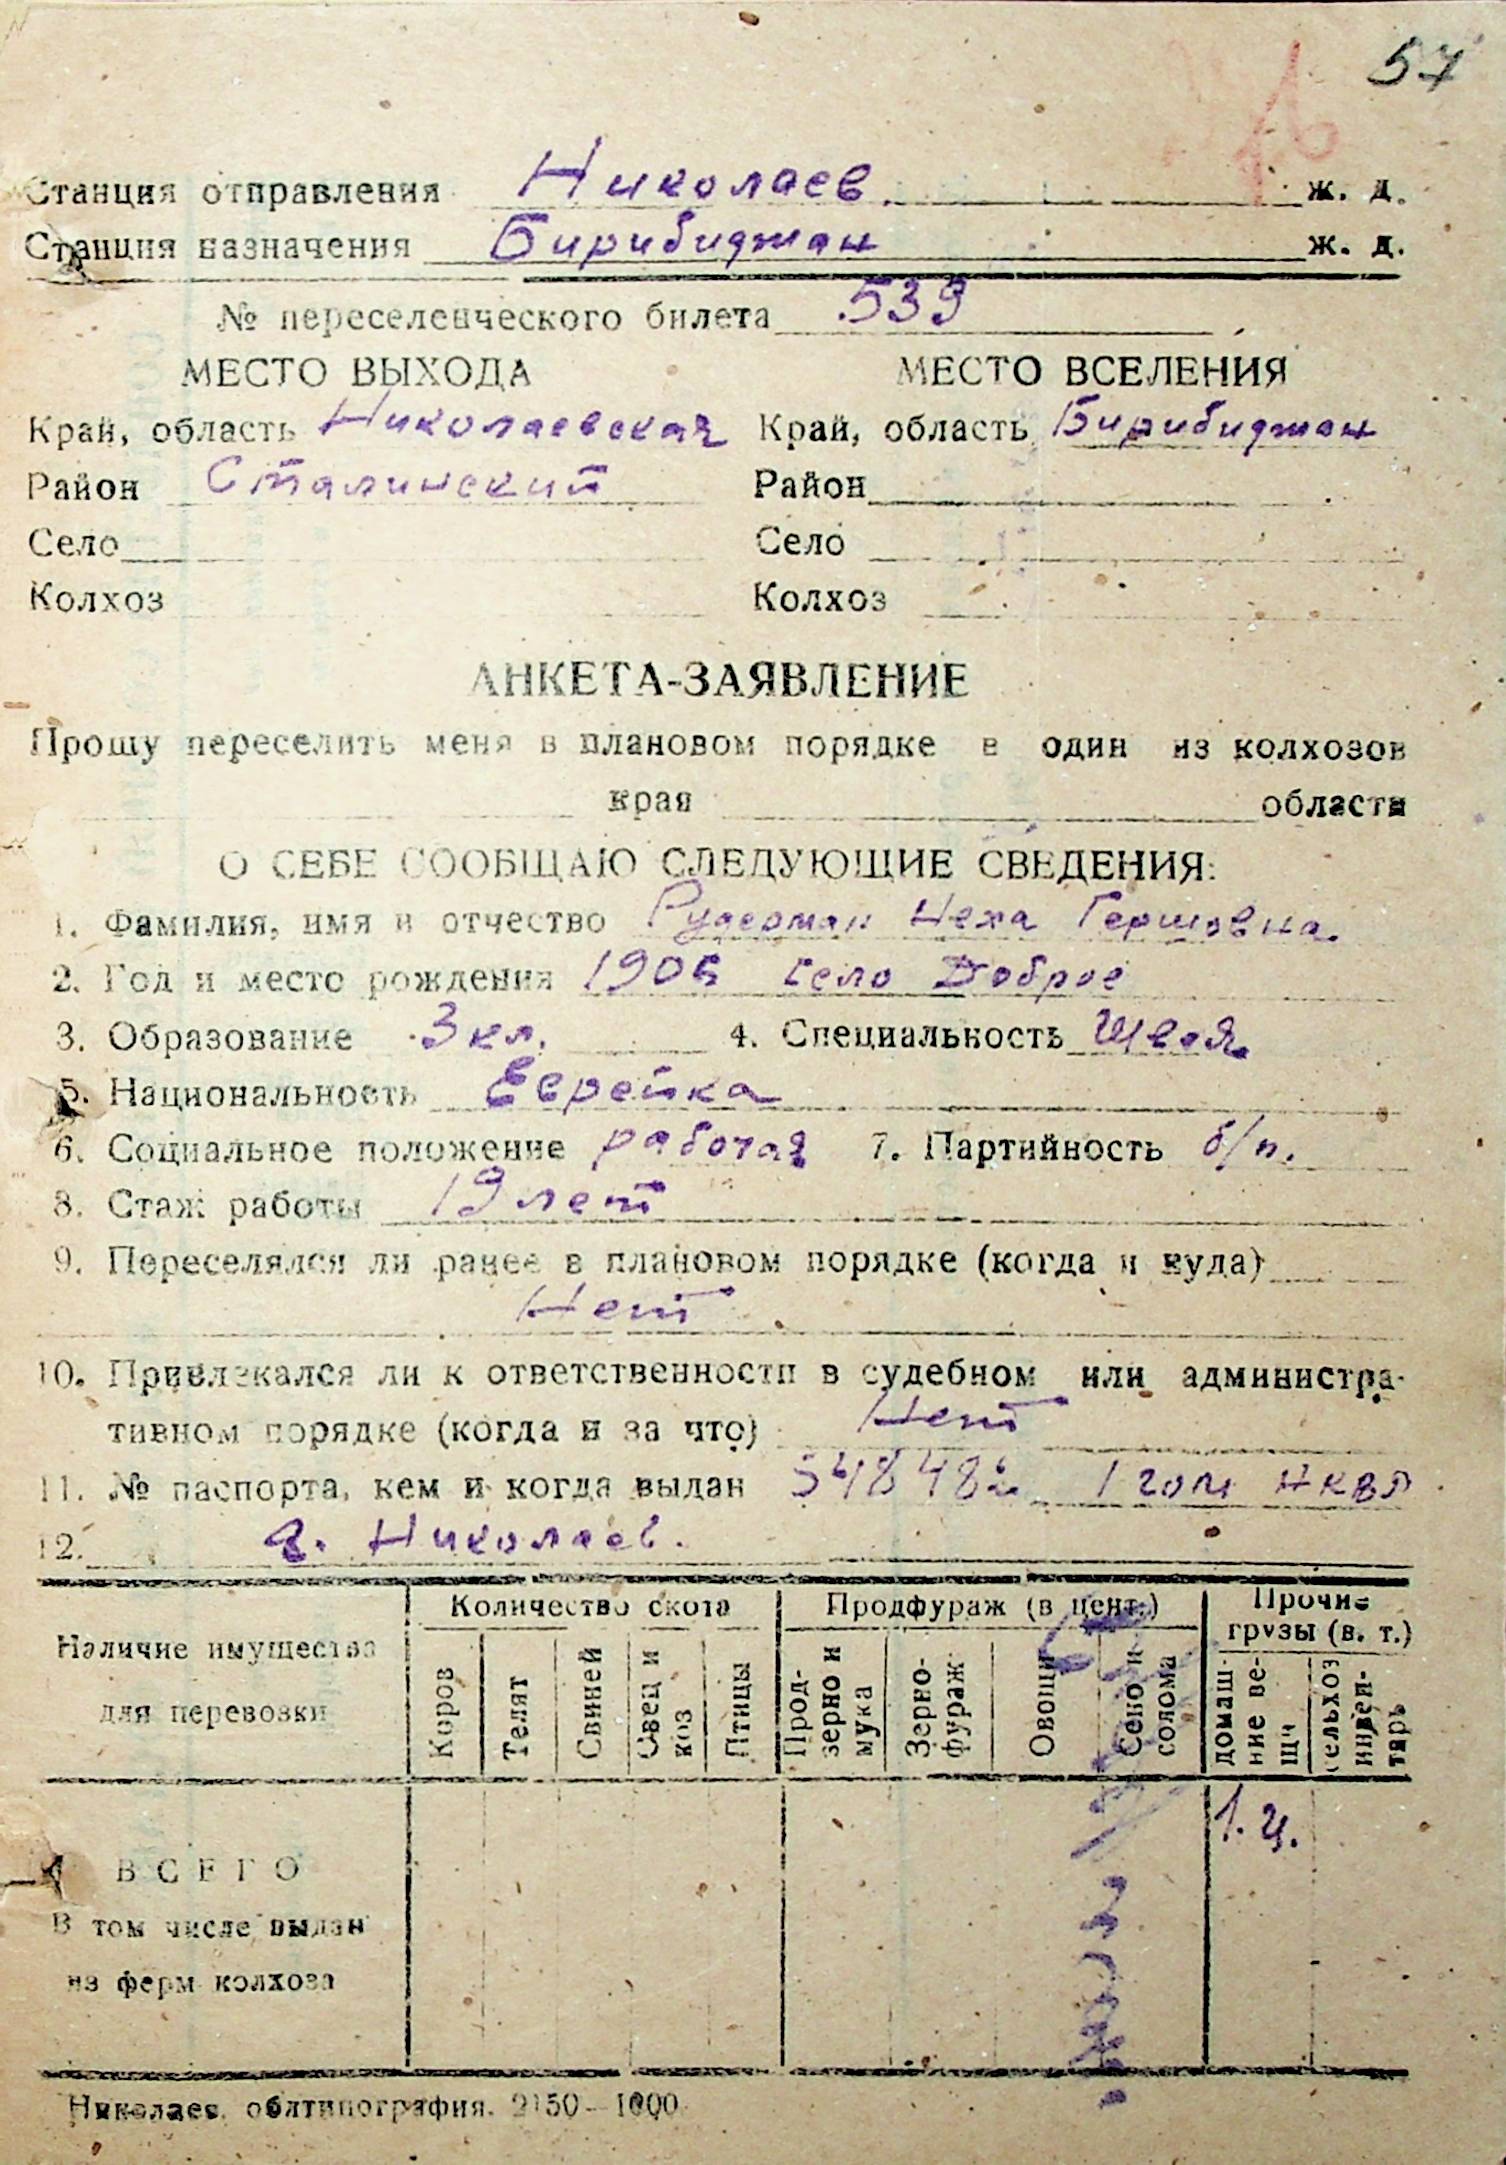 57
Станция отправления Николаев ж. д.
Станция назначения Бирибиджан ж. д.
№ переселенческого билета 539
МЕСТО ВЫХОДА МЕСТО ВСЕЛЕНИЯ
Край, область Николаевская Край, область Бирибиджан
Район Сталинский Район
Село Село
Колхоз Колхоз
АНКЕТА-ЗАЯВЛЕНИЕ
Прошу переселить меня в плановом порядке в один из колхозов
края области
О СЕБЕ СООБЩАЮ СЛЕДУЮЩИЕ СВЕДЕНИЯ:
1. Фамилия, имя и отчество Рудерман Неха Гершовна.
2. Год и место рождения 1906 село Доброе
3. Образование 3 кл. 4. Специальность Швея.
5. Национальность Еврейка
6. Социальное положение рабочая 7. Партийность б/п.
8. Стаж работы 19 лет
9. Переселялся ли ранее в плановом порядке (когда и куда)
Нет
10. Привлекался ли к ответственности в судебном или администра-
тивном порядке (когда и за что) Нет
11. № паспорта, кем и когда выдан 1 гом НКВД
12. г. Николаев.
Наличие имущества для перевозки
Количество скота
Продфураж (в цент.)
Прочие грузы (в. т.)
Коров
Телят
Свиней
Овец и коз
Птицы
Прод-зерно и мука
Зерно-фураж
Овощи
Сено и солома
домаш-ние ве-щи
сельхоз инвен-тарь
ВСЕГО 1.ц.
В том числе выдан
из ферм колхоза
Николаев, облтипография. 2150—1000